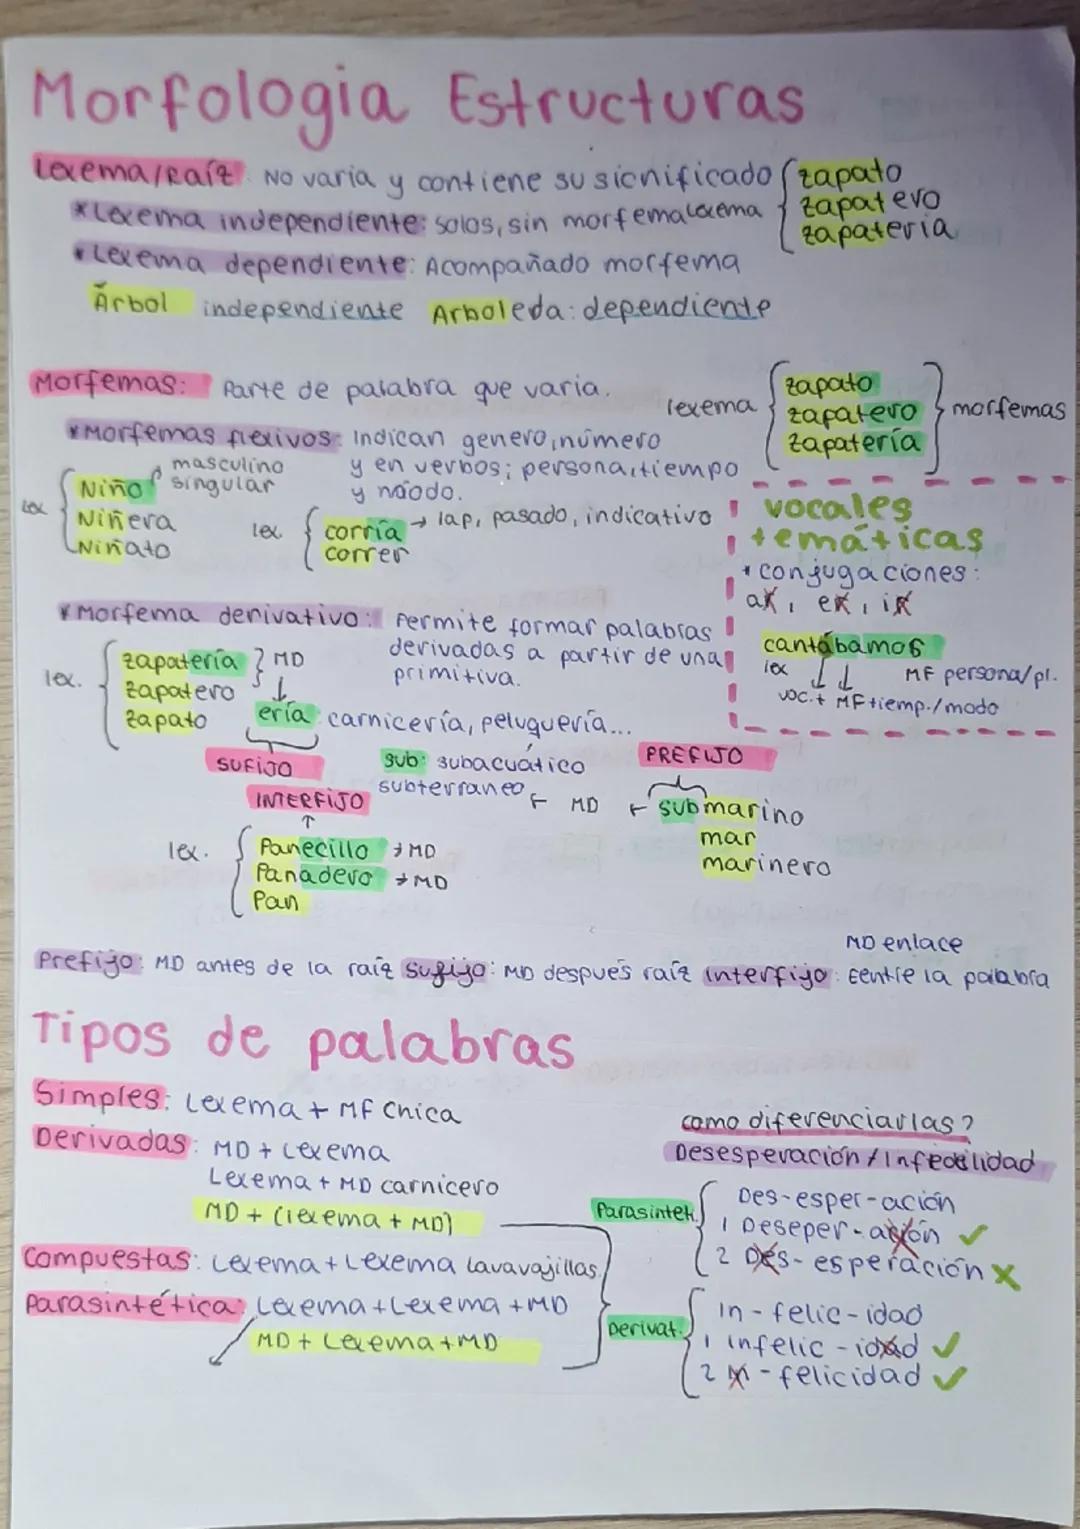 Morfologia Estructuras
Lexema/Raíz: No varia y contiene su sicnificado
zapato
zapatero
zapatería
*Lexema independiente: solos, sin morfema Lexema
*Lexema dependiente: Acompañado morfema
Árbol independiente Arboleda: dependiente
Morfemas: Parte de palabra que varia.
lexema
zapato
zapatero
zapatería
morfemas
*Morfemas flexivos: Indican genero, número
y en verbos; persona, tiempo
y modo.
masculino
singular
lex
Niño
Niñera
Niñato
lex.
corría → 1ap, pasado, indicativo
correr
vocales
temáticas
*conjugaciones:
ar, er, ir
cantábamos
lex
MF persona/pl.
voc.t MF tiemp./modo
*Morfema derivativo: Permite formar palabras
derivadas a partir de una
primitiva.
lex.
zapatería } MD
zapatero ↓
zapato
ería: carnicería, peluquería...
SUFIJO
sub: subacuático
subterraneo
PREFIJO
← MD ← submarino
mar
marinero
INTERFIJO
↑
lex.
Panecillo → MD
Panadero → MD
Pan
MD enlace
Prefijo: MD antes de la raíz Sufijo: MD después raíz Interfijo: Eentre la palabra
Tipos de palabras
Simples: Lexema + MF Chica
Derivadas: MD + Lexema
Lexema + MD carnicero
MD + (lexema + MD)
Compuestas: Lexema + Lexema Lavavajillas
Parasintética: Lexema + Lexema + MD
MD + Lexema + MD
como diferenciarlas?
Desesperación / Infedilidad
Parasintet.
Des-esper-ación
1 Deseper-ación ✓
2 Des-esperación X
Derivat.
In-felic-idad
1 infelic-idad ✓
2 In-felicidad ✓